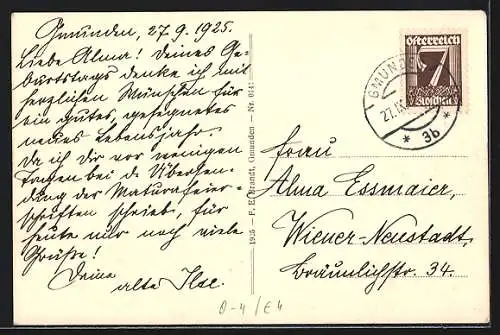 Gmunden, 27.9.1925.
Liebe Alma! Deines Ge-
burtstags denke ich mit
herzlichen Wünschen für
ein gutes, gesegnetes
neues Lebensjahr.
Da ich Dir vor wenigen
Tagen bei der Übersen-
dung der Maturafeier-
schriften schrieb, für
heute nur noch viele
Grüße!
Deine
alte Ilse.
1925 — F. E. Brandt, Gmunden — Nr. 0141
Österreich
7
Groschen
GMUNDEN
27.IX
* 3b *
Frau
Alma Essmaier,
Wiener-Neustadt,
Bräunlichstr. 34.